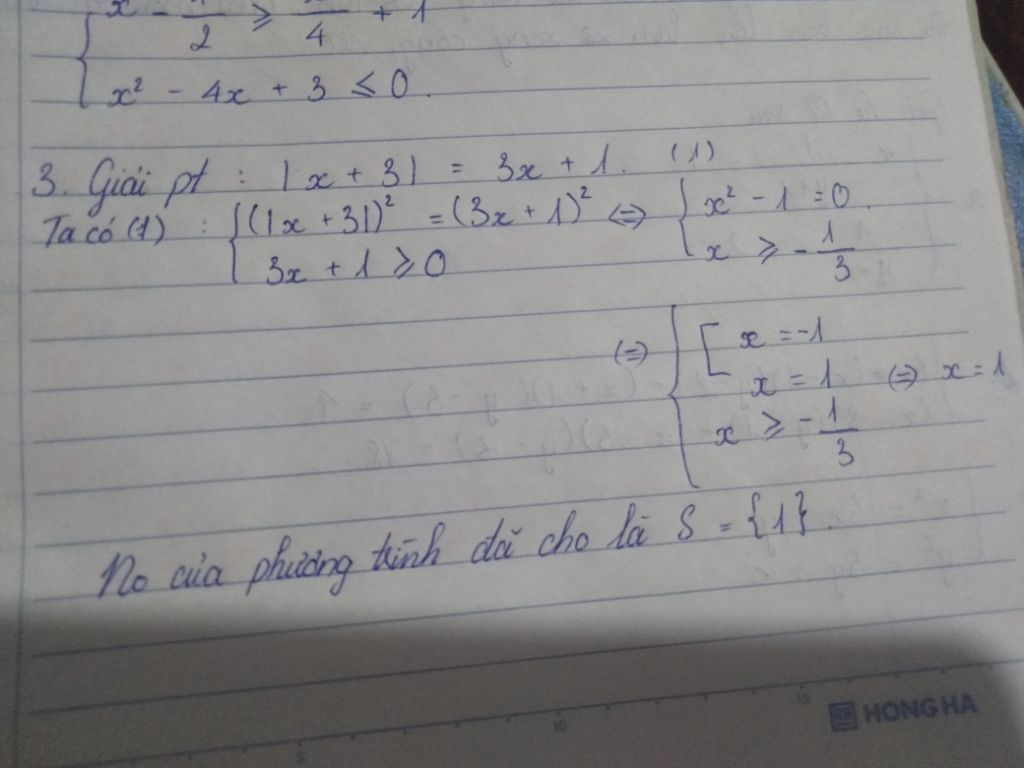 x - /2 ≥ /4 + 1
x² - 4x + 3 ≤ 0.
3. Giải pt : |x + 3| = 3x + 1. (1)
Ta có (1) : { (|x + 3|)² = (3x + 1)² (=) { x² - 1 = 0.
3x + 1 ≥ 0 x ≥ - 1/3
(=) { [ x = -1
x = 1 (=) x = 1
x ≥ - 1/3
No của phương trình đã cho là S = {1}.
5 10 15
HONG HA